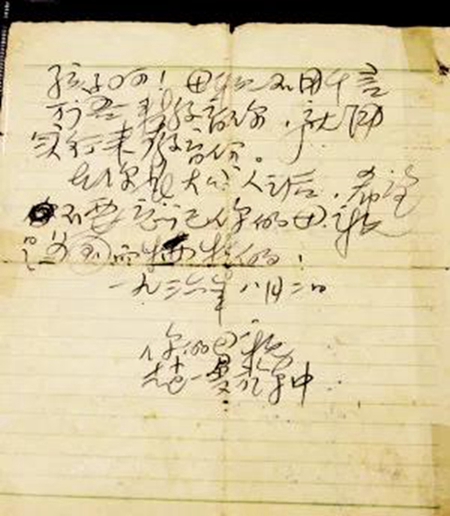 孩子呵！母親不用千言
万语来教育你，就用
实行来教育你。
在你长大成人之后，希望
不要忘记你的母親
是为国而牺牲的！
一九三六年八月二日
你的母親
赵一曼於车中